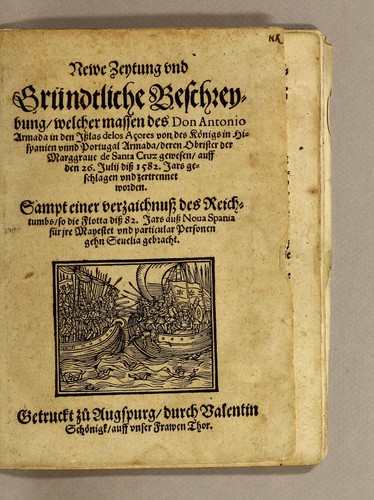 Newe Zeytung vnd
Gründtliche Beschrey-
bung/ welcher massen des Don Antonio
Armada in den Ißlas delos Açores von des Königs in Hi-
spanien vnnd Portugal Armada/ deren Obrister der
Marggraue de Santa Cruz gewesen/ auff
den 26. Julij diß 1582. Jars ge-
schlagen vnd zertrennet
worden.
Sampt einer verzaichnuß des Reich-
tumbs/ so die Flotta diß 82. Jars auß Noua Spania
für jre Mayestet vnd particular Personen
gehn Seuelia gebracht.
Getruckt zů Augspurg/ durch Valentin
Schönigk/ auff vnser Frawen Thor.